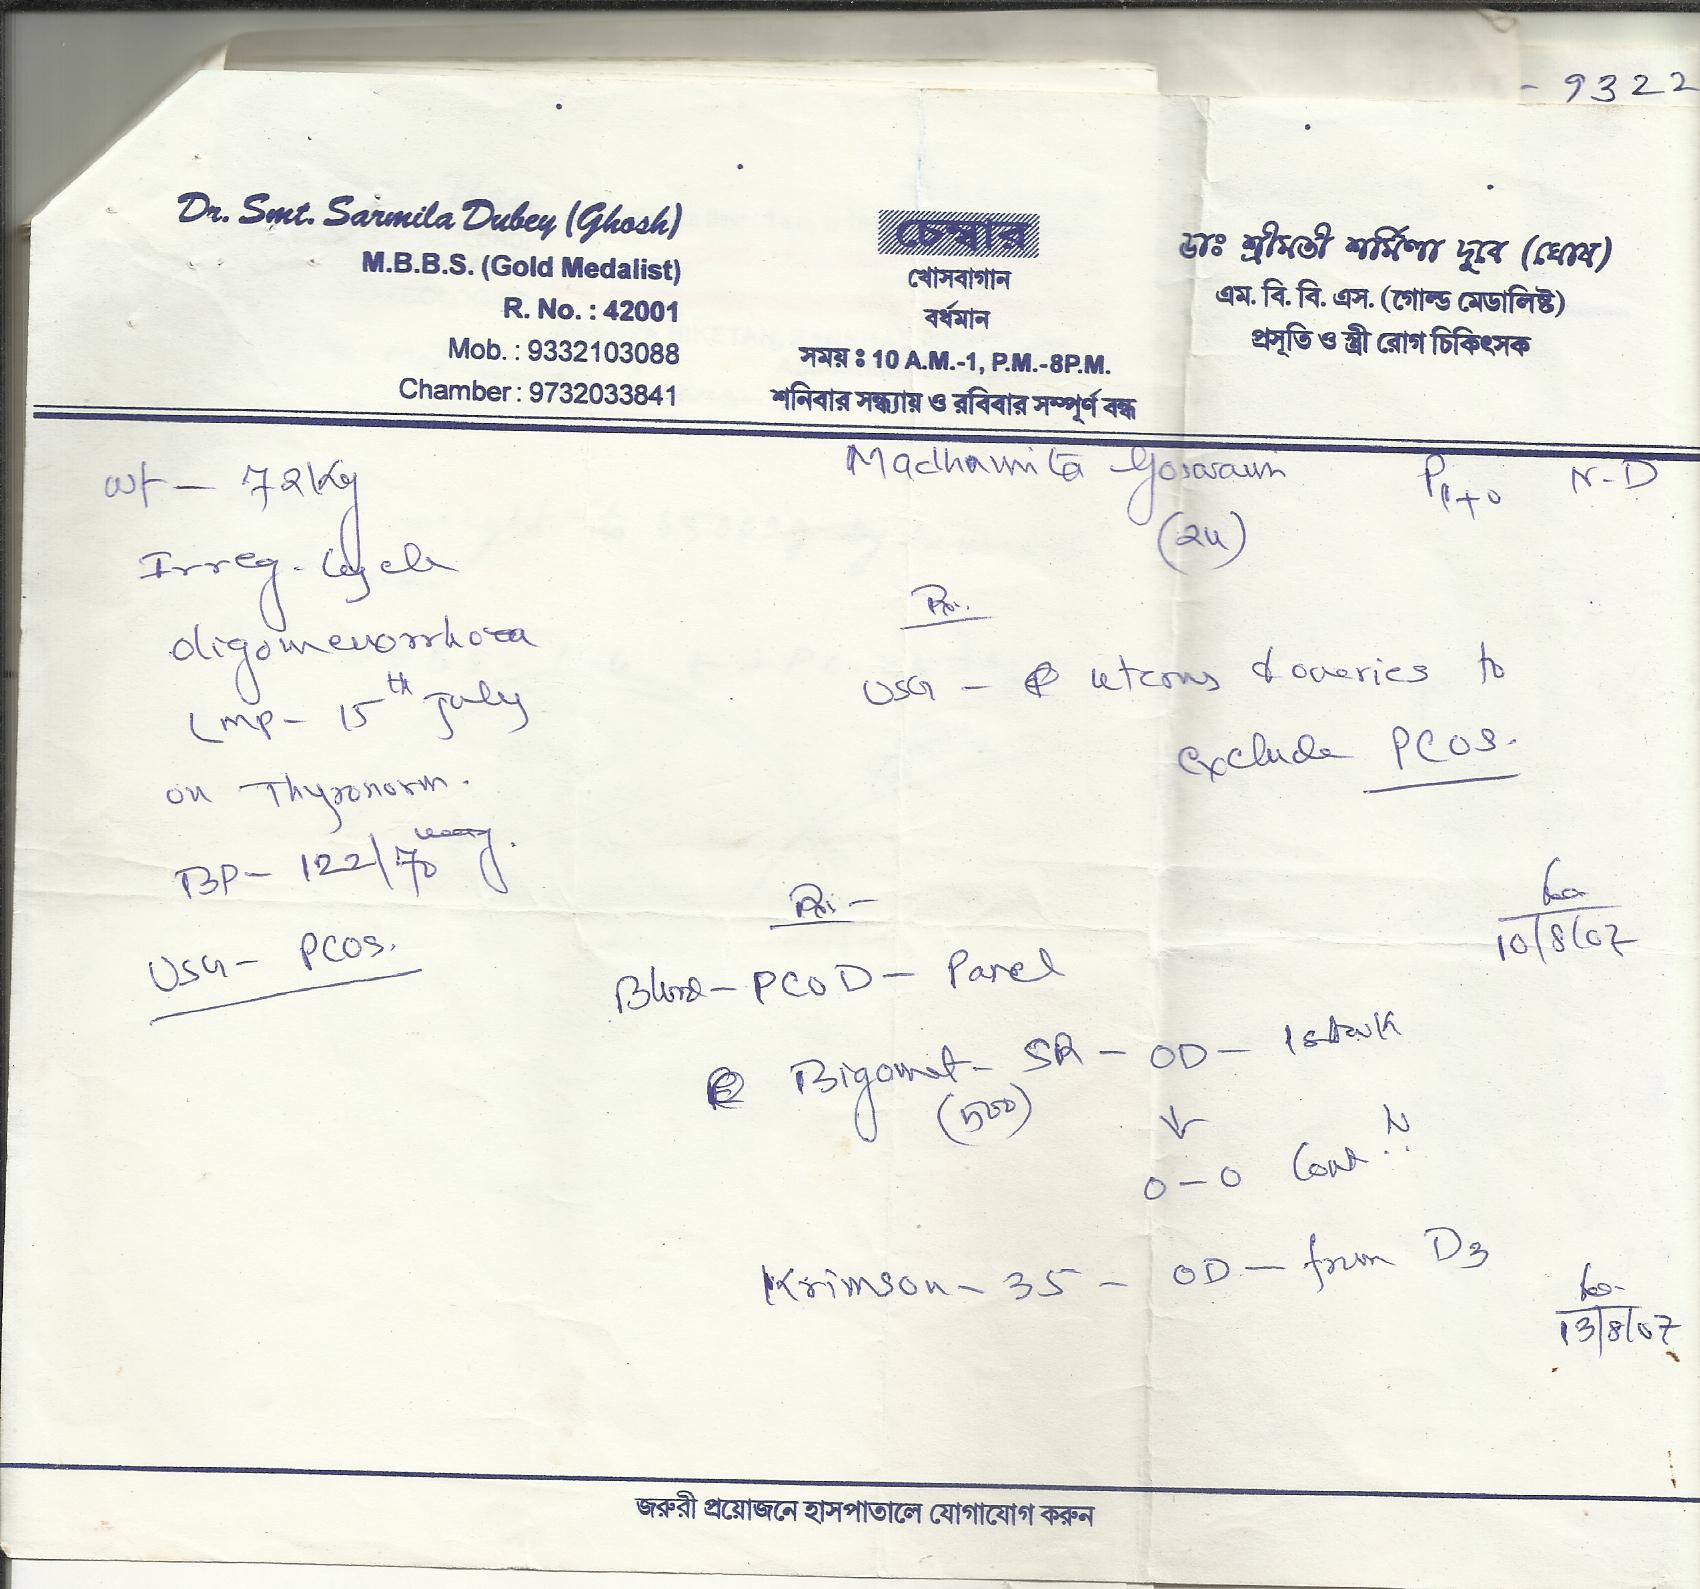 - 9322
Dr. Smt. Sarmila Dubey (Ghosh)
M.B.B.S. (Gold Medalist)
R. No. : 42001
Mob. : 9332103088
Chamber : 9732033841
চেম্বার
খোসবাগান
বর্ধমান
সময় ঃ 10 A.M.-1, P.M.-8P.M.
শনিবার সন্ধ্যায় ও রবিবার সম্পূর্ণ বন্ধ
ডাঃ শ্রীমতী শর্মিলা দুবে (ঘোষ)
এম. বি. বি. এস. (গোল্ড মেডালিষ্ট)
প্রসূতি ও স্ত্রী রোগ চিকিৎসক
Madhumita Goswami P1+0 N-D
(24)
wt - 72Kg
Irreg. Cycle
Oligomenorrhoea
LMP- 15th July
on Thyronorm.
BP- 122/70
USG- PCOS.
USG - uterus & overies to
exclude PCOS.
10/8/07
Blood - PCOD - Panel
Bigomet - SR - OD -
(500)
0-0 Cont
Krimson - 35 - OD - from D3
13/8/07
জরুরী প্রয়োজনে হাসপাতালে যোগাযোগ করুন